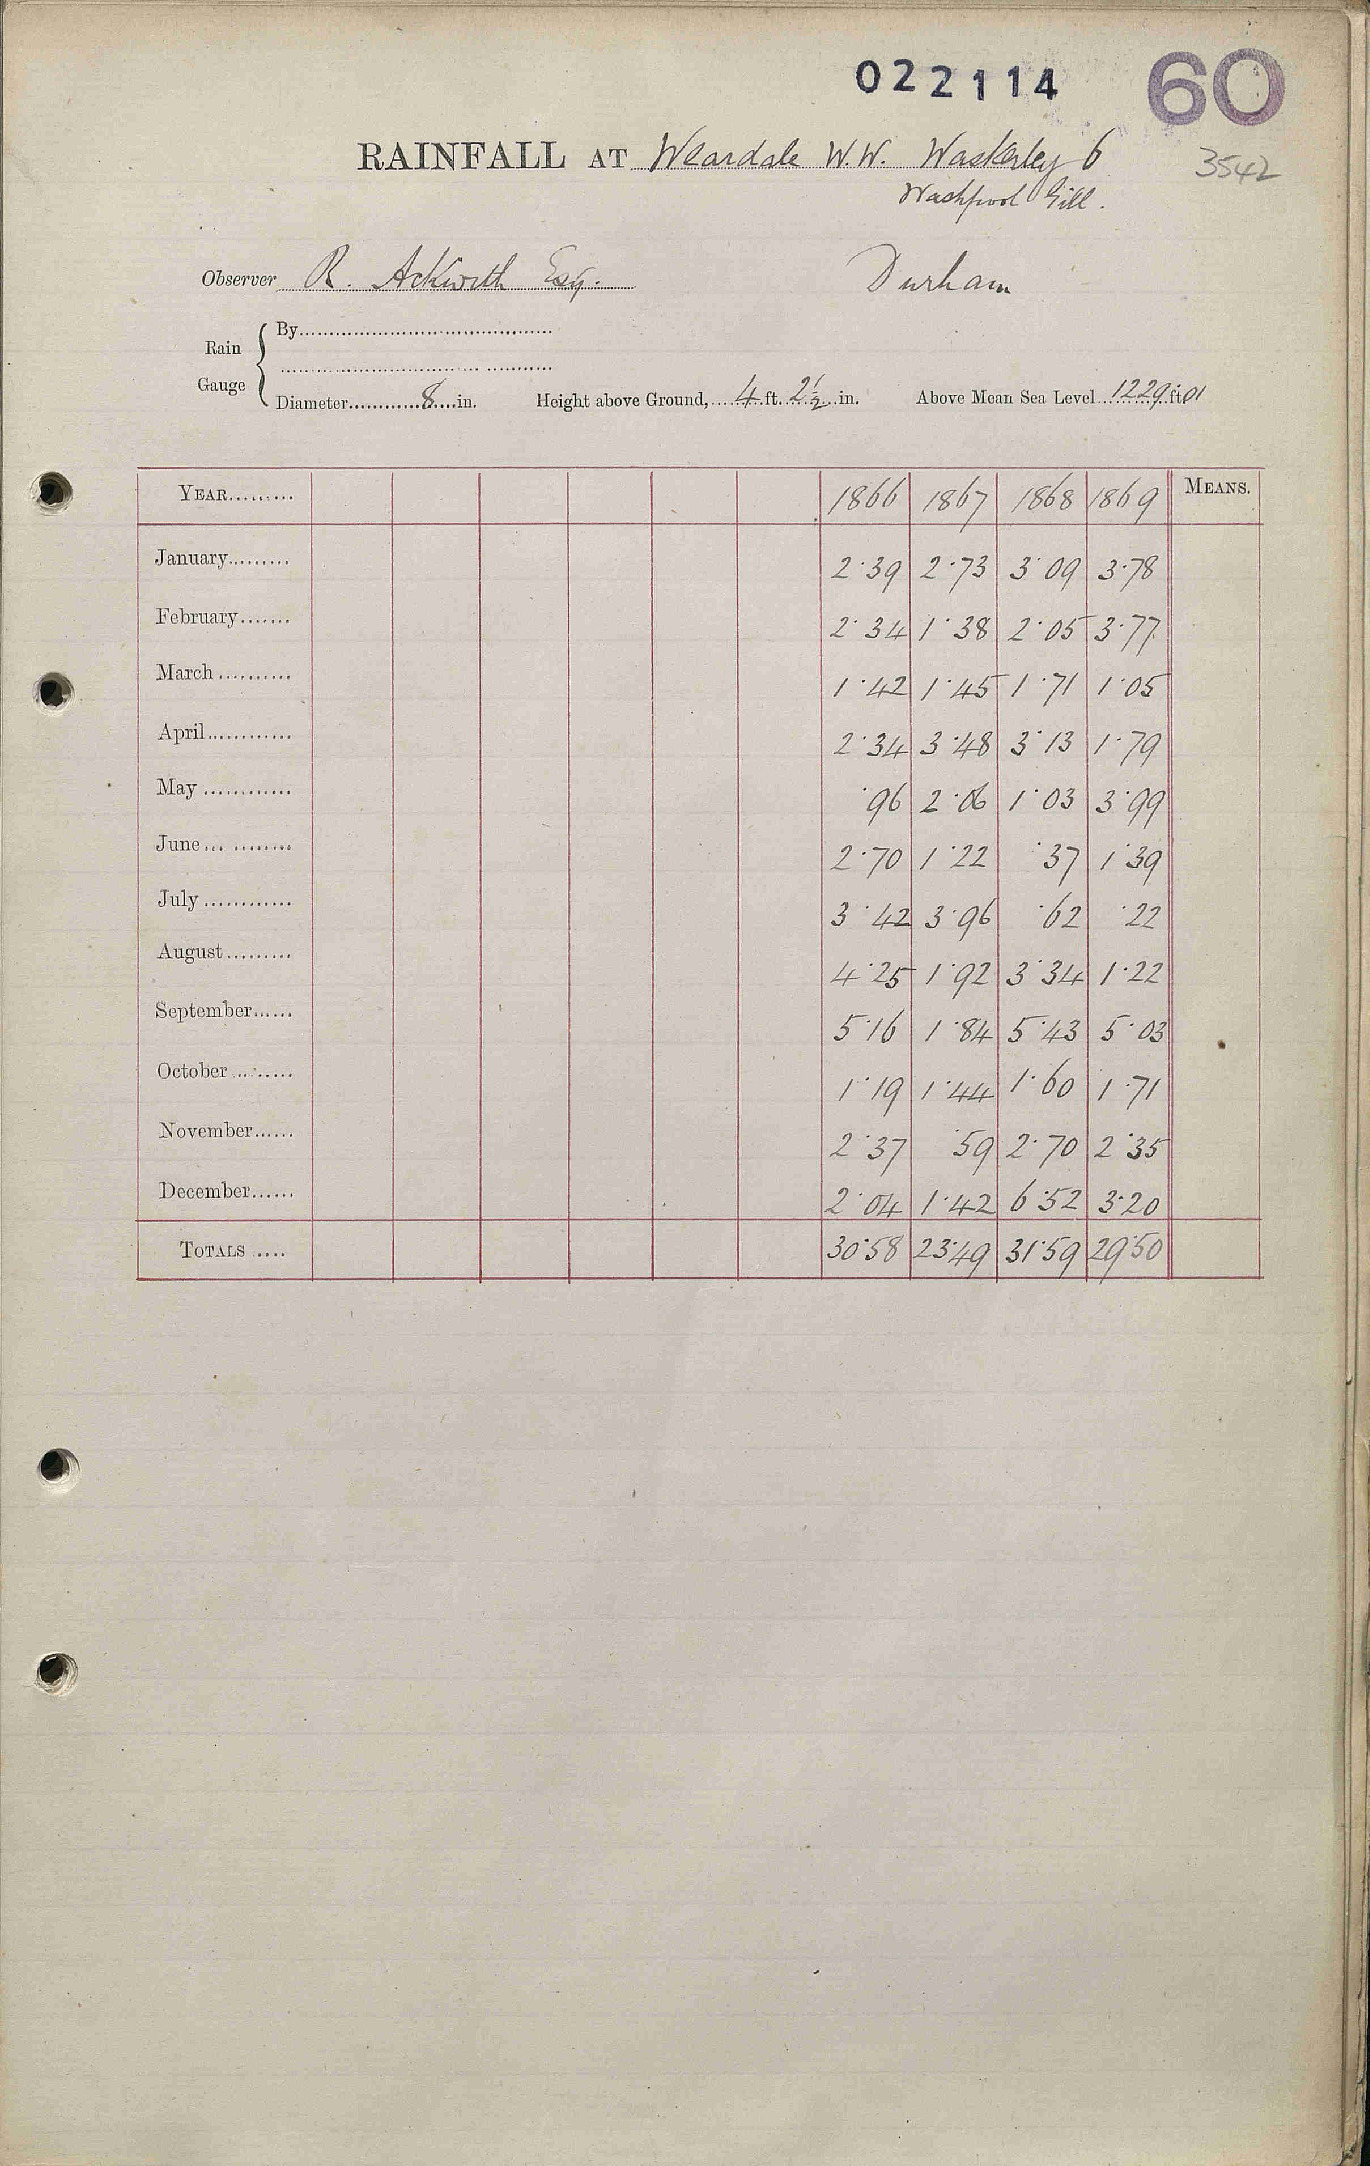 022114 60
RAINFALL AT Weardale W.W. Waskerley 6 3542
Washpool Gill.
Observer R. Ackworth Esq. Durham
Rain Gauge
By
Diameter 8 in. Height above Ground, 4 ft. 2½ in. Above Mean Sea Level 1229 ft 01
YEAR 1866 1867 1868 1869 MEANS.
January 2·39 2·73 3·09 3·78
February 2·34 1·38 2·05 3·77
March 1·42 1·45 1·71 1·05
April 2·34 3·48 3·13 1·79
May ·96 2·06 1·03 3·99
June 2·70 1·22 ·37 1·39
July 3·42 3·96 ·62 ·22
August 4·25 1·92 3·34 1·22
September 5·16 1·84 5·43 5·03
October 1·19 1·44 1·60 1·71
November 2·37 ·59 2·70 2·35
December 2·04 1·42 6·52 3·20
TOTALS 30·58 23·49 31·59 29·50